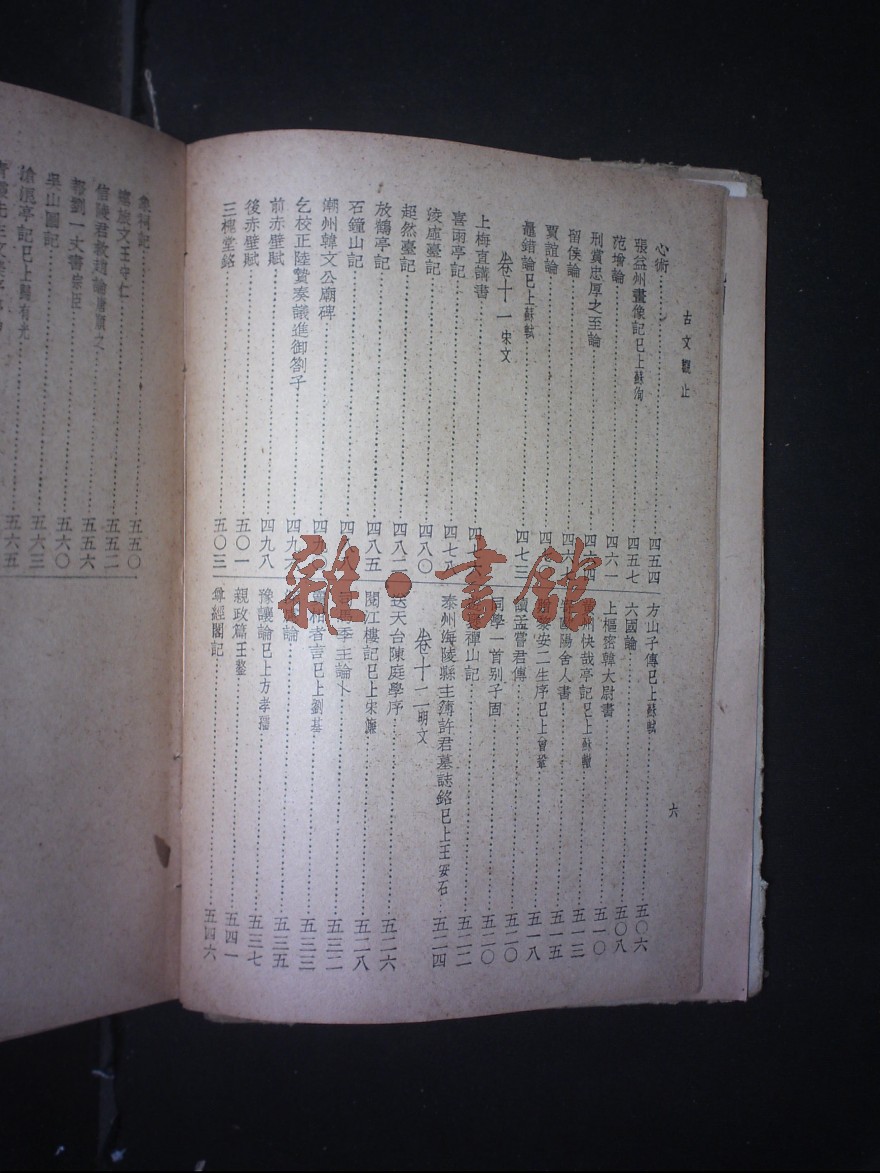 古文觀止
六
心術 四五四
張益州畫像記已上蘇洵 四五七
范增論 四六一
刑賞忠厚之至論 四六四
留侯論 四六
賈誼論 四七
鼂錯論已上蘇軾 四七三
卷十一宋文
上梅直講書 四七
喜雨亭記 四七八
淩虛臺記 四八〇
超然臺記 四八二
放鶴亭記 四八五
石鐘山記 四八
潮州韓文公廟碑 四九
乞校正陸贄奏議進御劄子 四九六
前赤壁賦 四九八
後赤壁賦 五〇一
三槐堂銘 五〇三
方山子傳已上蘇軾 五〇六
六國論 五〇八
上樞密韓太尉書 五一〇
州快哉亭記已上蘇轍 五一三
歐陽舍人書 五一五
黎安二生序已上曾鞏 五一八
讀孟嘗君傳 五二〇
同學一首别子固 五二〇
禪山記 五二二
泰州海陵縣主簿許君墓誌銘已上王安石 五二四
卷十二明文
送天台陳庭學序 五二六
閱江樓記已上宋濂 五二八
季主論卜 五三二
柑者言已上劉基 五三三
論 五三五
豫讓論已上方孝孺 五三七
親政篇王鏊 五四一
尊經閣記 五四六
象祠記 五五〇
瘞旅文王守仁 五五二
信陵君救趙論唐順之 五五六
報劉一丈書宗臣 五六〇
吳山圖記 五六三
滄浪亭記已上歸有光 五六五
雜·書館